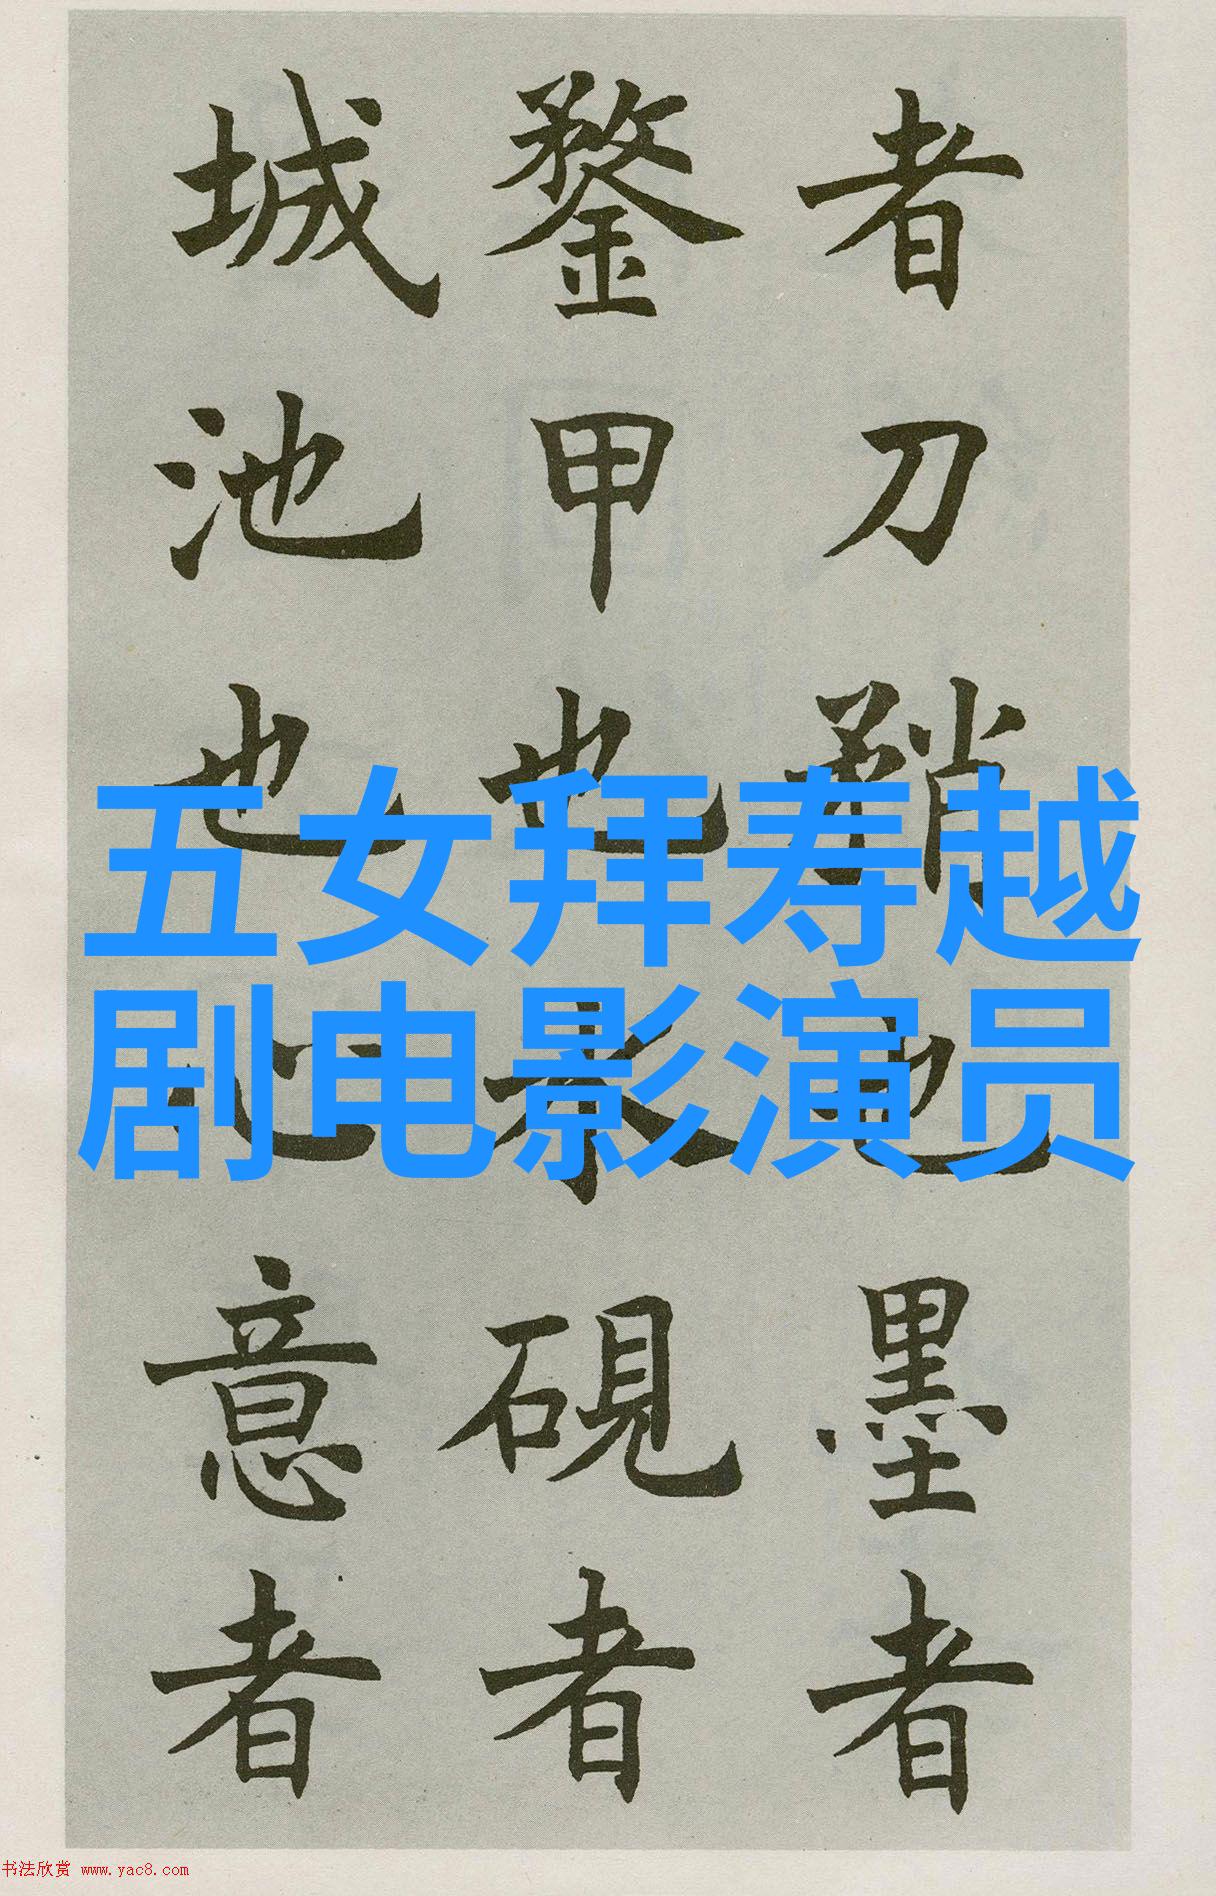 者刀矟也墨者
鍪甲也水硯者
城池也心意者
五女拜寿越
剧电影演员
书法欣赏 www.yac8.com